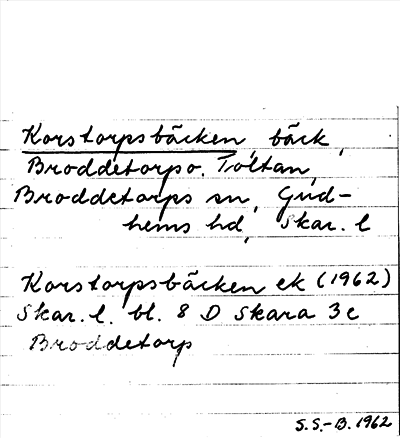 Korstorpsbäcken, bäck,
Broddetorp o. Tåltan,
Broddetorps sn, Gud-
hems hd, Skar. l
Korstorpsbäcken ek (1962)
Skar. l. bl. 8 D Skara 3e
Broddetorp
S.S.-B. 1962